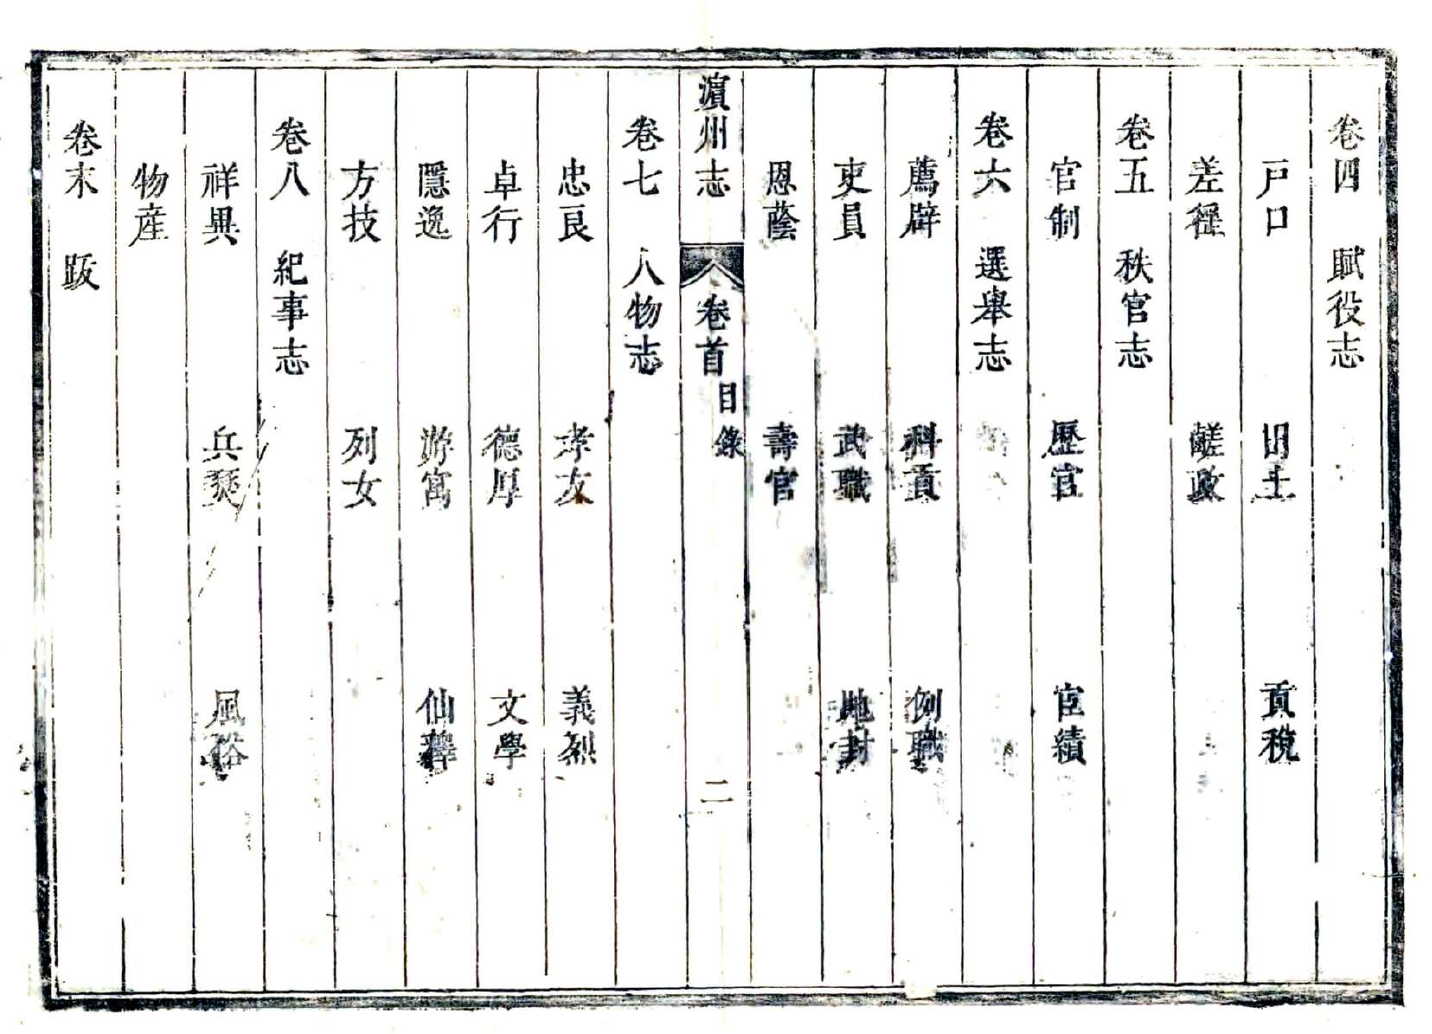 卷四　賦役志
戶口　田土　貢稅
差徭　鹺政
卷五　秩官志
官制　歷官　宦績
卷六　選舉志
薦辟　科貢　例職
吏員　武職　馳封
恩蔭　壽官
濵州志　卷首　目錄　二
卷七　人物志
忠良　孝友　義烈
卓行　德厚　文學
隱逸　游寓　仙釋
方技　列女
卷八　紀事志
祥異　兵燹　風俗
物産
卷末　跋